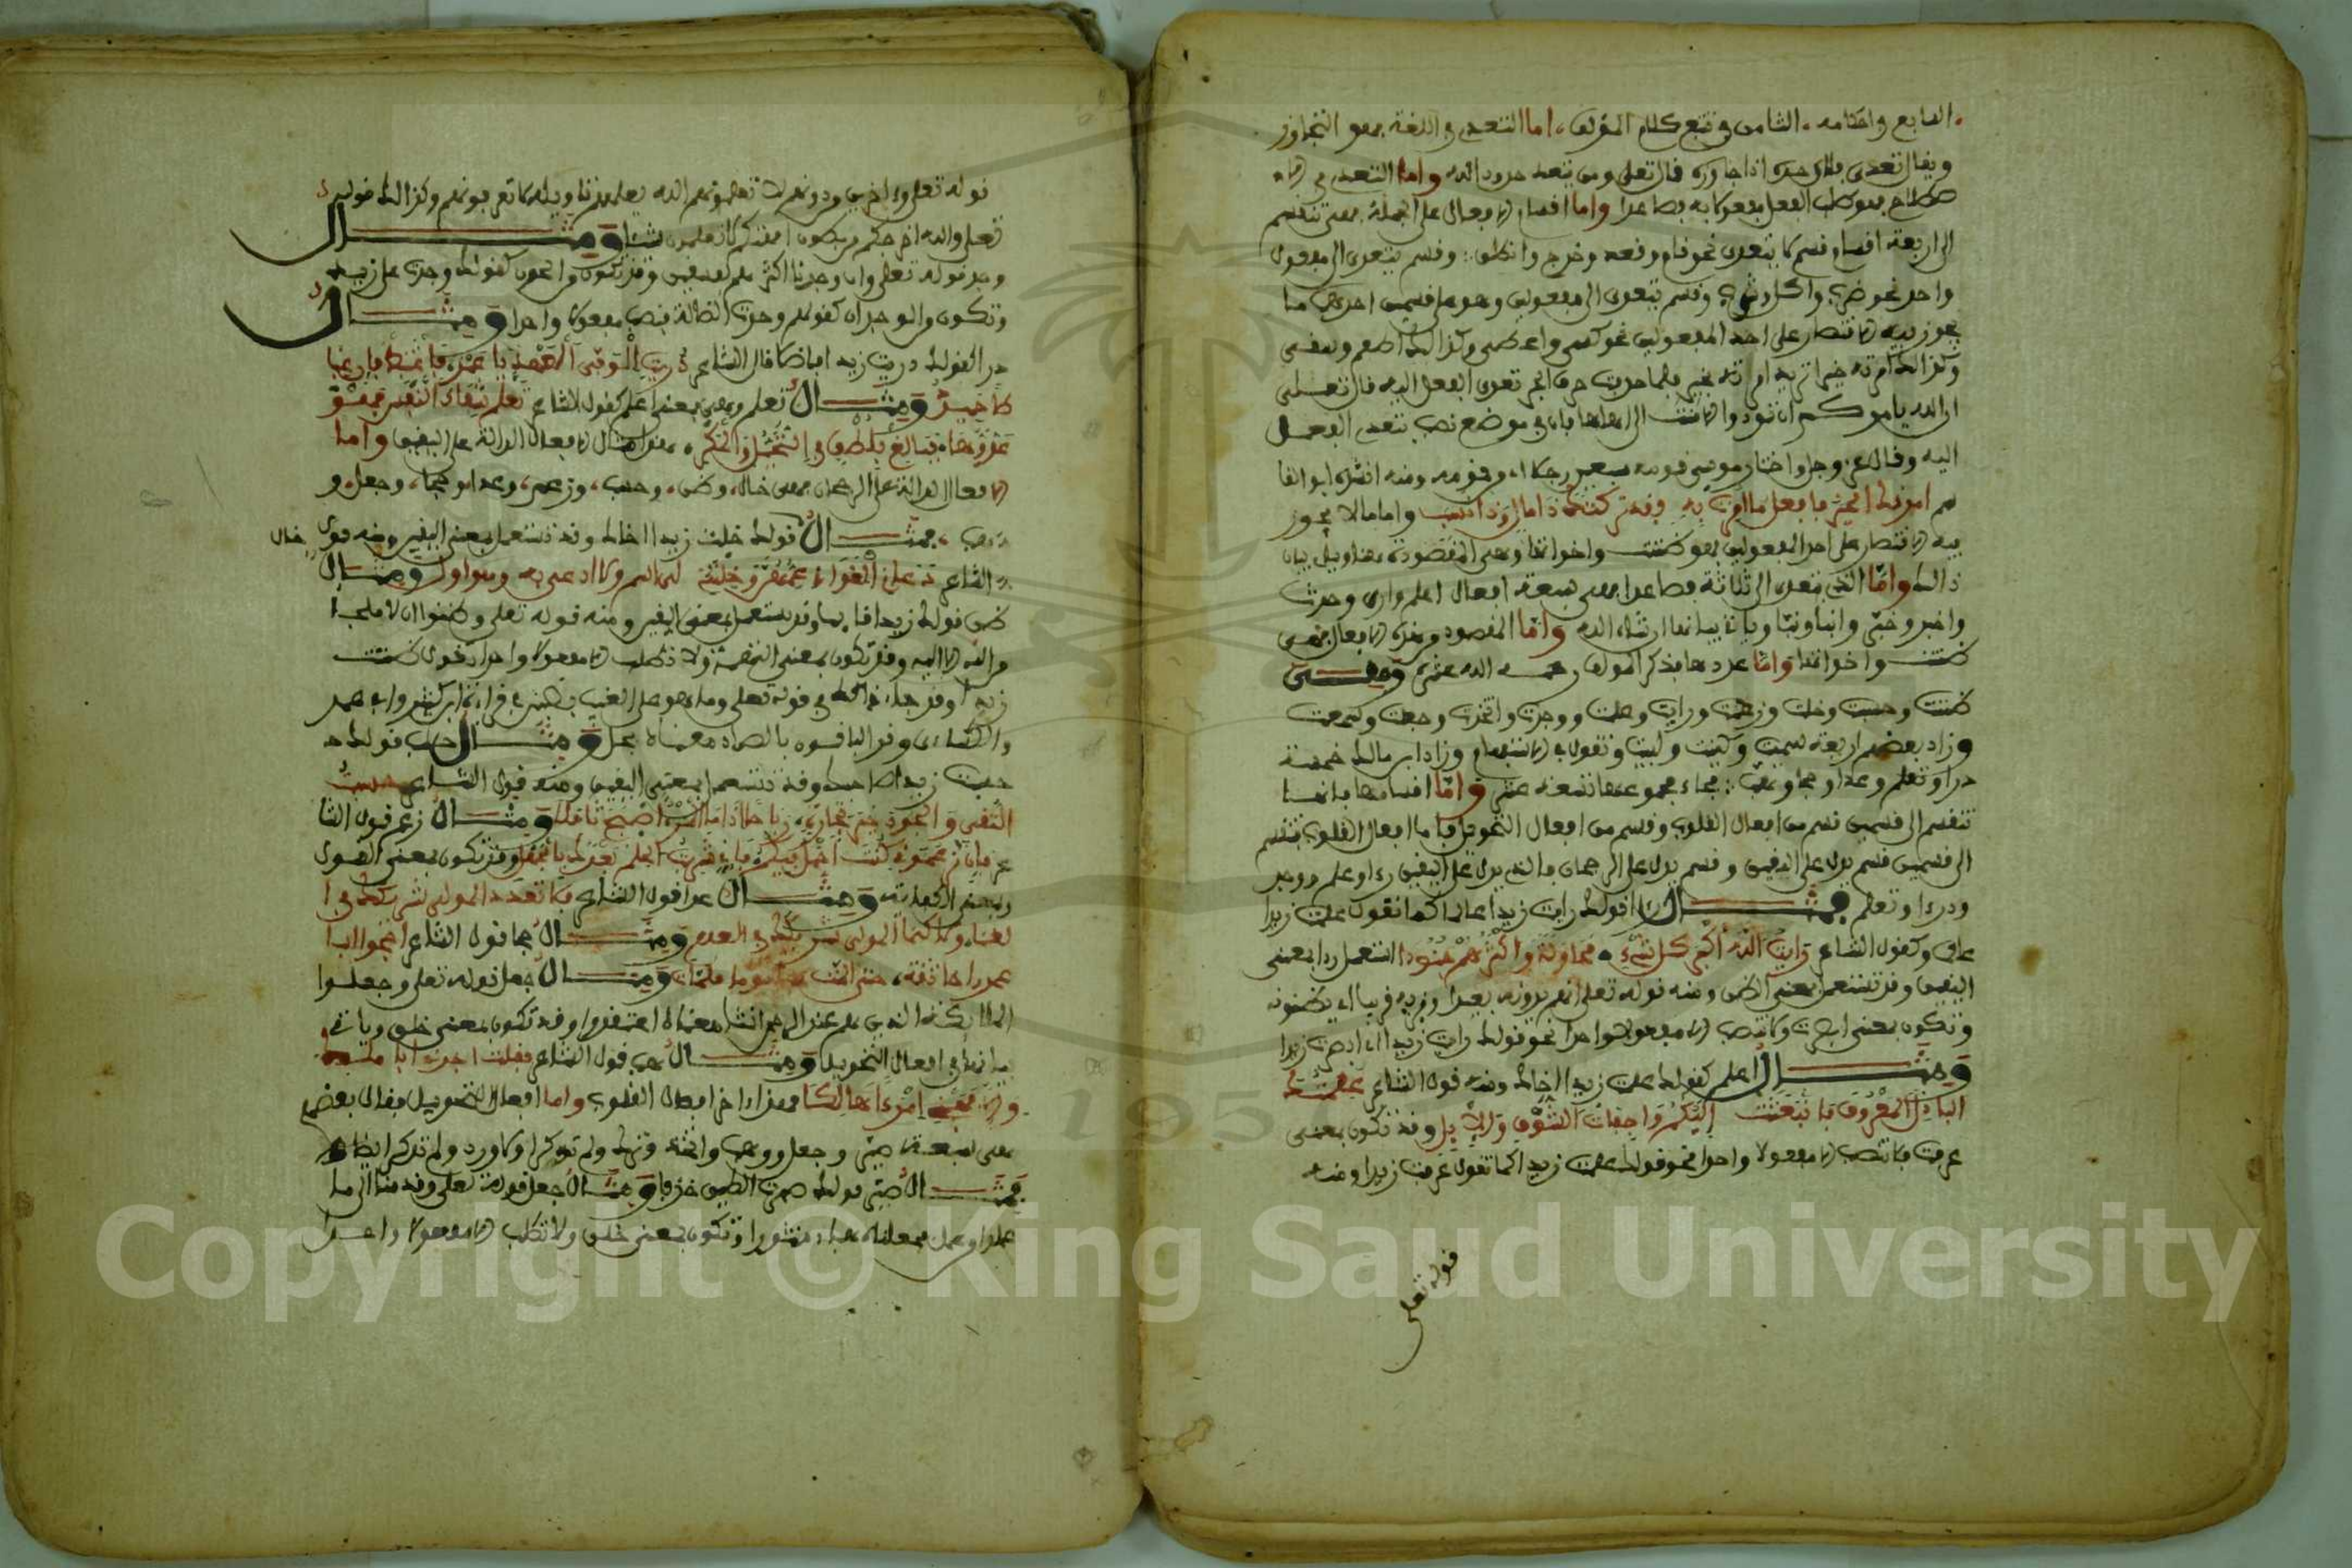 السابع في احكامه. الثامن في تتبع كلام المؤلف. اما التعدي في اللغة فهو التجاوز
ويقال تعدى فلان حده اذا جاوزه قال تعلى ومن يتعد حدود الله واما التعدي في الا
صطلاح فهو طلب الفعل مفعولا به فصاعدا واما اقسام الافعال على الجملة فهي تنقسم
الى اربعة اقسام قسم لا يتعدى نحو قام وقعد وخرج وانطلق وقسم يتعدى الى مفعول
واحد نحو ضرب واكل وشرب وقسم يتعدى الى مفعولين وهو على قسمين احدهما ما
يجوز فيه الاقتصار على احد المفعولين نحو كسى واعطى وكذالك اطعم وسقى
وكذالك امرته خيرا تريد امرته بخير فلما حذفت حرف الجر تعدى الفعل اليه قال تعلى
ان الله يامركم ان تودوا الامنت الى اهلها فان في موضع نصب بتعدي الفعل
اليه وقال عز وجل واختار موسى قومه سبعين رجلا اي من قومه ومنه انشد ابوا القا
سم امرتك الخير فافعل ما امرت به فقد تركتك ذا مال وذا نشب واما ما لا يجوز
فيه الاقتصار على احد المفعولين فهو ظننت واخواتها وهي المقصودة بهذا وبيان
ذالك واما الذي يتعدى الى ثلاثة فصاعدا فهي سبعة افعال اعلم وارى وحدث
واخبر وخبر وانبا ونبا وياتي بيانها ان شاء الله واما المقصود من هذه الافعال فهي
ظننت واخواتها واما عددها فذكر المولف رحمه الله عشرة وهي
ظننت وحسبت وخلت وزعمت ورايت وعلمت ووجدت واتخذت وجعلت وسمعت
وزاد بعضهم اربعة سميت وكنيت ولبيت وتقول في الاستفهام وزاد ابن مالك خمسة
درا وتعلم وعدا وحجا وهب فجاء مجموعها تسعة عشر واما اقسامها فانها
تنقسم الى قسمين قسم من افعال القلوب وقسم من افعال التحويل فاما افعال القلوب فتنقسم
الى قسمين قسم يدل على اليقين وقسم يدل على الرجحان فالذي يدل على اليقين راء وعلم ووجد
ودرا وتعلم فمثال راا قولك رايت زيدا عالما كما تقول علمت زيدا
عالما وكقول الشاعر رايت الله اكبر كل شيء محاولة واكثرهم جنودا استعمل را بمعنى
اليقين وقد تستعمل بمعنى الظن ومنه قوله تعلى انهم يرونه بعيدا ونريه قريبا اي يظنونه
وتكون بمعنى ابصرت ولا تنصب الا مفعولا واحدا نحو قولك رايت زيدا اي ابصرت زيدا
ومثال اعلم كقولك علمت زيدا اخاك ومنه قول الشاعر علمتك
الباذل المعروف فانبعثت اليك بي واجفات الشوق والامل وقد تكون بمعنى
عرفت فلا تنصب الا مفعولا واحدا نحو قولك علمت زيدا كما تقول عرفت زيدا ومنه
قوله تعلى
قوله تعلى واخرين من دونهم لا تعلمونهم الله يعلمهم تاويله لا تعرفونهم وكذالك قوله
تعلى والله اخرجكم من بطون امهتكم لا تعلمون شيئا ومثال
وجد قوله تعلى وان وجدنا اكثرهم لفسقين وقد تكون من الحزن كقولك وجدت على زيد
وتكون من الوجدان كقولهم وجدت الضالة فتنصب مفعولا واحدا ومثال
درا كقولك دريت زيدا قال الشاعر دريت الوفي العهد يا عرو فاغتبط فان اغتبا
طا حميد ومثال تعلم وهي بمعنى اعلم كقول الشاعر تعلم شفاء النفس قهر
عدوها فبالغ بلطف في التحيل والمكر فهذا مثال الافعال الدالة على اليقين واما
الافعال الدالة على الرجحان فهي خال، وظن، وحسب، وزعم، وعدا، وحجا، وجعل، و
وهب، فمثال قولك خلت زيدا اخاك وقد تستعمل بمعنى اليقين ومنه قول
خال
الشاعر دعاني الغواني عمهن وخلتني لي اسم فلا ادعى به وهو اول ومثال
ظن قولك زيدا قايما وقد يستعمل بمعنى اليقين ومنه قوله تعلى وظنوا ان لا ملجا
من الله الا اليه وقد تكون بمعنى التهمة ولا تطلب الا مفعولا واحدا تقول ظننت
زيدا وقد جاء ذالك في قوله تعلى وما هو على الغيب بظنين في قراءة ابن كثير وابي عمرو
والكساءي وقرا الباقون بالضاد معناه بخيل ومثال حسب قولك
حسبت زيدا صاحبك وقد تستعمل بمعنى اليقين ومنه قول الشاعر حسبت
التقى والجود خير تجارة رباحا اذا ما المرء اصبح ثاقلا ومثال زعم قول الشا
عر فان تزعميني كنت اجهل فيكم فاني شريت الحلم بعدك بالجهل وقد تكون بمعنى القول
وبمعنى الكفالة ومثال عدا قول الشاعر فلا تعدد المولى شريكك في ا
لغناء ولاكنما المولى شريكك في العدم ومثال حجا قول الشاعر احجوا ابا
عمرو اخا ثقة، حتى المت بنا يوما ملمات ومثال جعل قوله تعلى وجعلوا
الملائكة الذين هم عند الرحمن اناثا معناه اعتقدوا وقد تكون بمعنى خلق وياتي
بيانها في افعال التحويل ومثال هب قول الشاعر فقلت اجرني ابا مالك
والا فهبني امرءا هالكا فهذا اخر افعال القلوب واما افعال التحويل فقال بعضهم
هي سبعة صير وجعل ووهب واتخذ وترك ولم تذكرا ورد ولم تذكر ايضا
فمثال صير قولك صيرت الطين خزفا ومثال جعل قوله تعلى وقدمنا الى ما
عملوا من عمل فجعلناه هباء منثورا وتكون بمعنى خلق ولا تطلب الا مفعولا واحدا
Copyright © King Saud University
1957